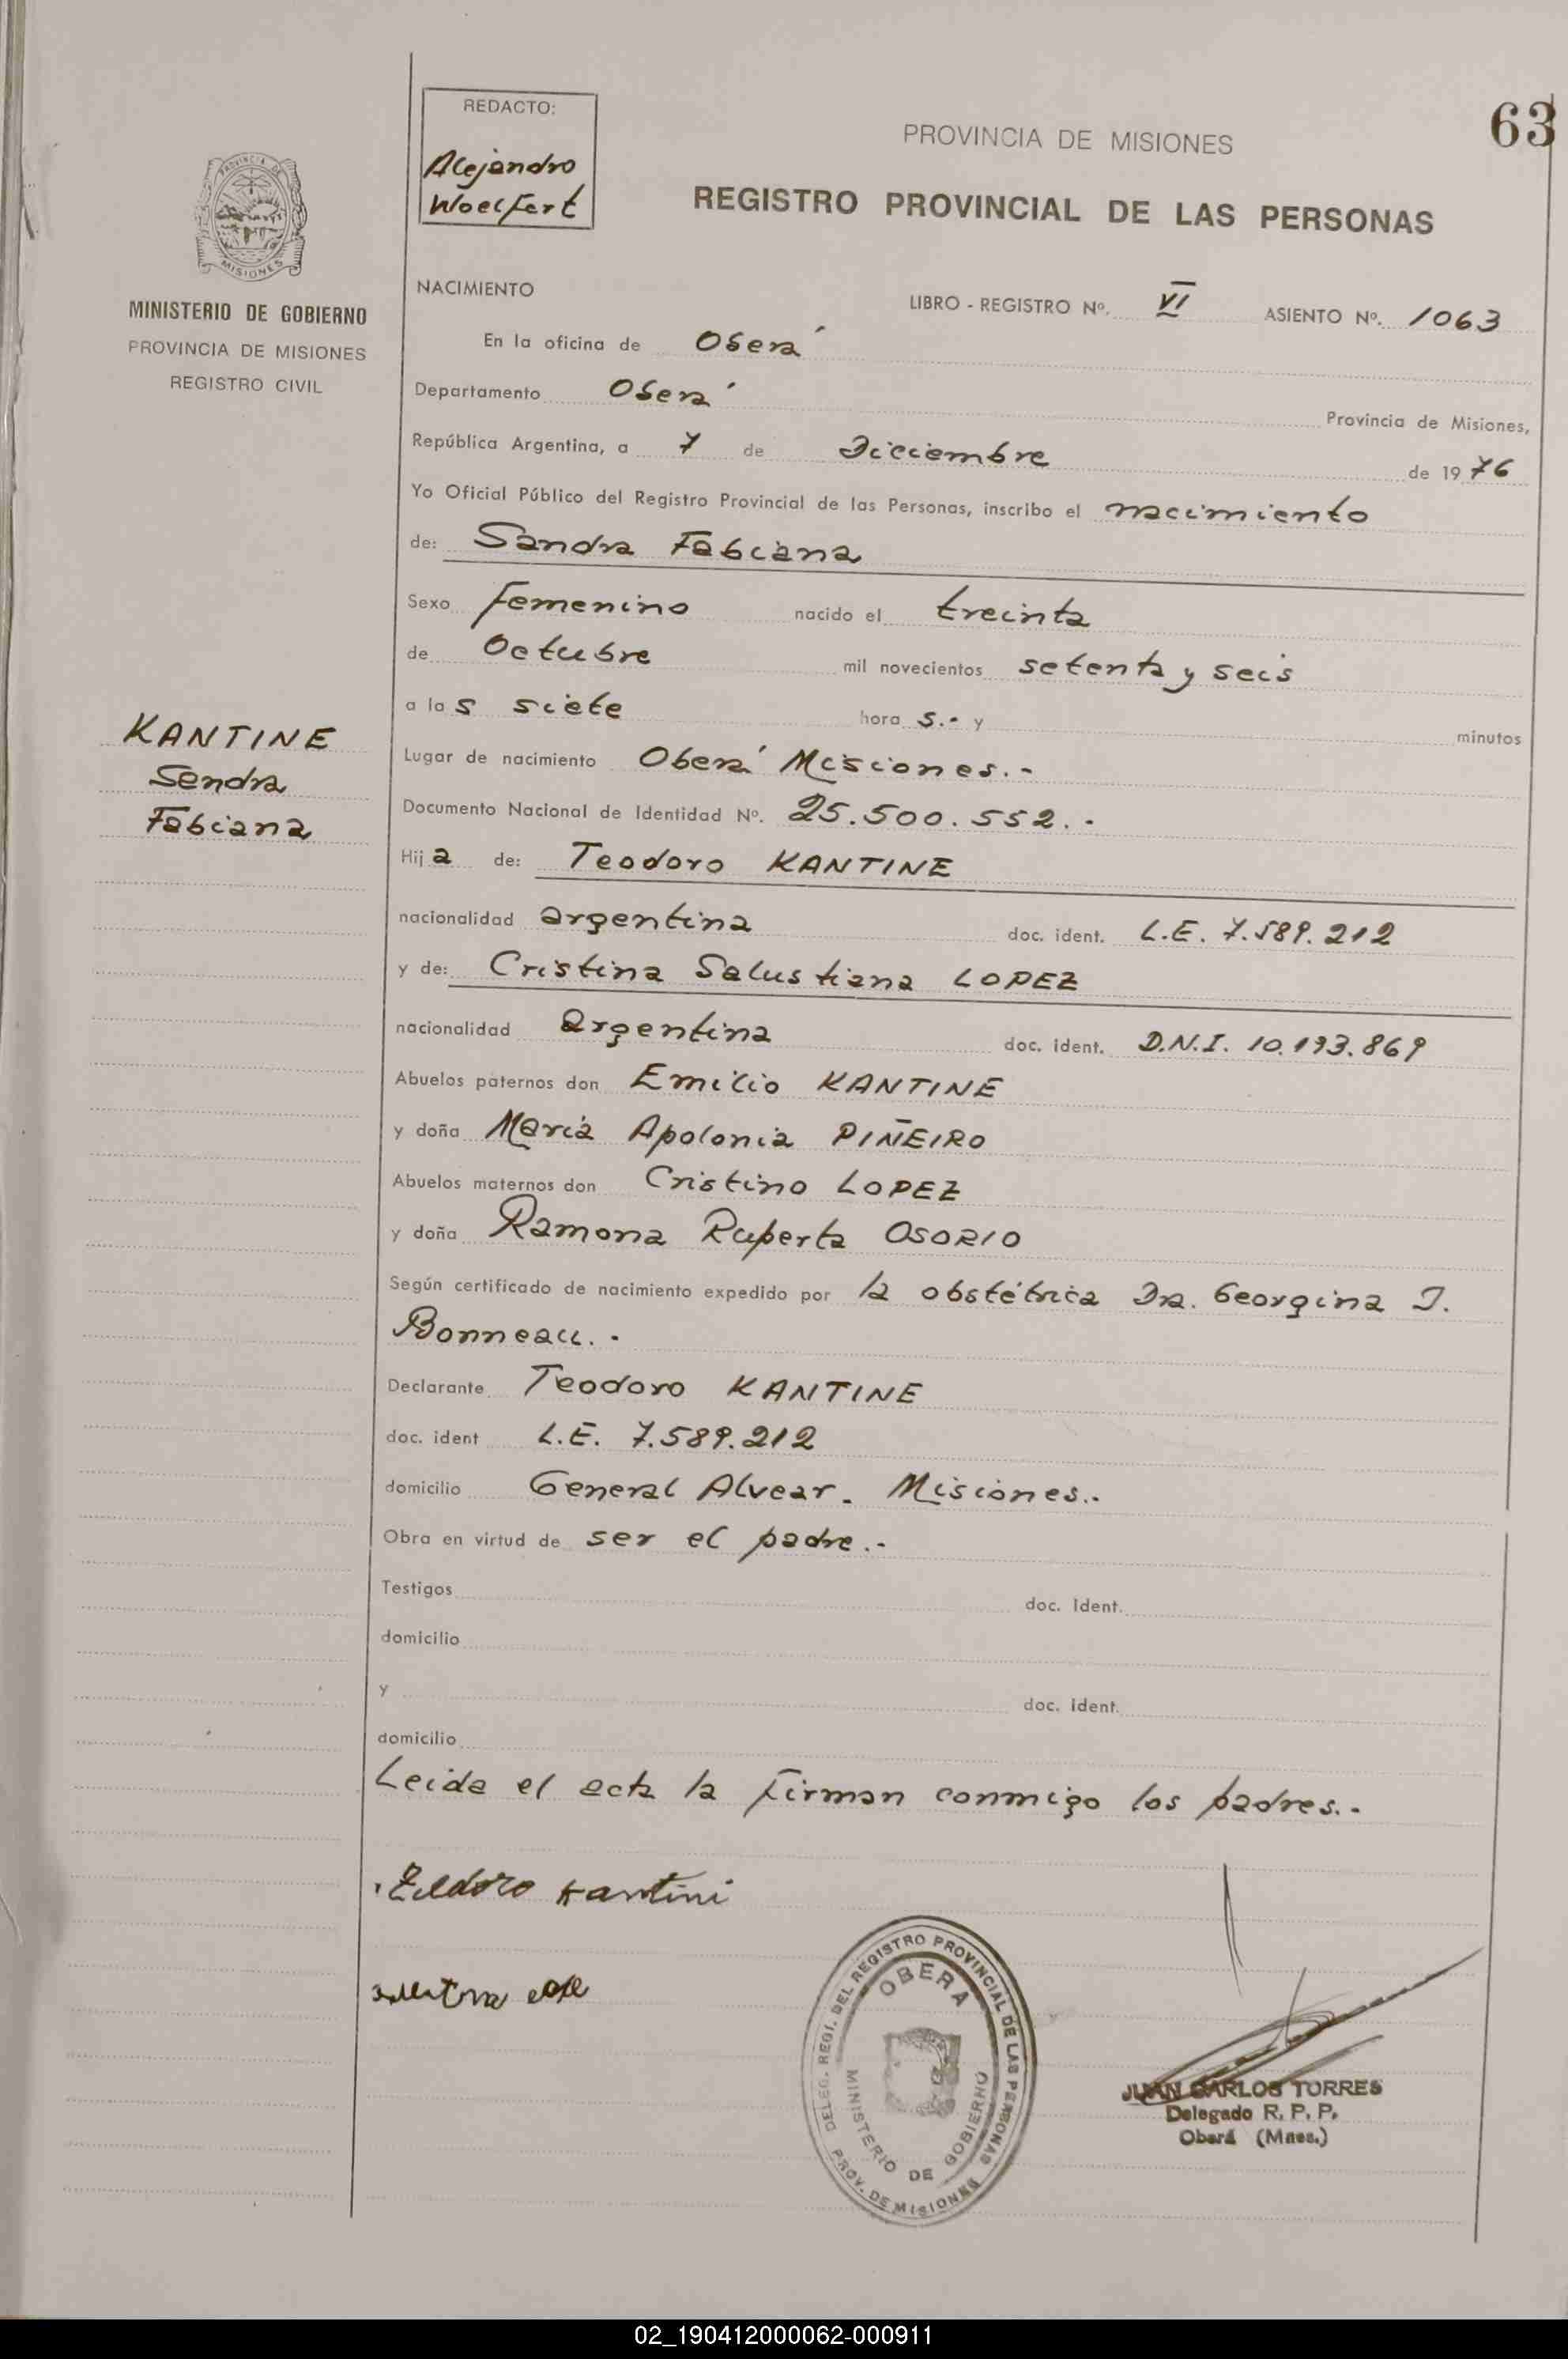 63
REDACTO:
Alejandro
Woelfert
PROVINCIA DE MISIONES
REGISTRO PROVINCIAL DE LAS PERSONAS
PROVINCIA DE
MISIONES
MINISTERIO DE GOBIERNO
PROVINCIA DE MISIONES
REGISTRO CIVIL
NACIMIENTO
LIBRO - REGISTRO Nº. VI ASIENTO Nº. 1063
En la oficina de Oberá
Departamento Oberá Provincia de Misiones,
República Argentina, a 7 de Diciembre de 1976
Yo Oficial Público del Registro Provincial de las Personas, inscribo el nacimiento
de: Sandra Fabiana
Sexo femenino nacido el treinta
de Octubre mil novecientos setenta y seis
a las siete hora s.- y minutos
KANTINE
Sandra
Fabiana
Lugar de nacimiento Oberá Misiones.-
Documento Nacional de Identidad Nº. 25.500.552.-
Hija de: Teodoro KANTINE
nacionalidad argentina doc. ident. L.E. 7.589.212
y de: Cristina Salustiana LOPEZ
nacionalidad argentina doc. ident. D.N.I. 10.193.869
Abuelos paternos don Emilio KANTINE
y doña María Apolonia PIÑEIRO
Abuelos maternos don Cristino LOPEZ
y doña Ramona Ruperta OSORIO
Según certificado de nacimiento expedido por la obstétrica Dra. Georgina J.
Bonneau.-
Declarante Teodoro KANTINE
doc. ident L.E. 7.589.212
domicilio General Alvear. Misiones.-
Obra en virtud de ser el padre.-
Testigos doc. Ident.
domicilio
y doc. ident.
domicilio
Leida el acta la firman conmigo los padres.-
Kantini
DELEG. REGI. DEL REGISTRO PROVINCIAL DE LAS PERSONAS
OBERA
MINISTERIO DE GOBIERNO
PROV. DE MISIONES
JUAN CARLOS TORRES
Delegado R. P. P.
Oberá (Mnes.)
02_190412000062-000911